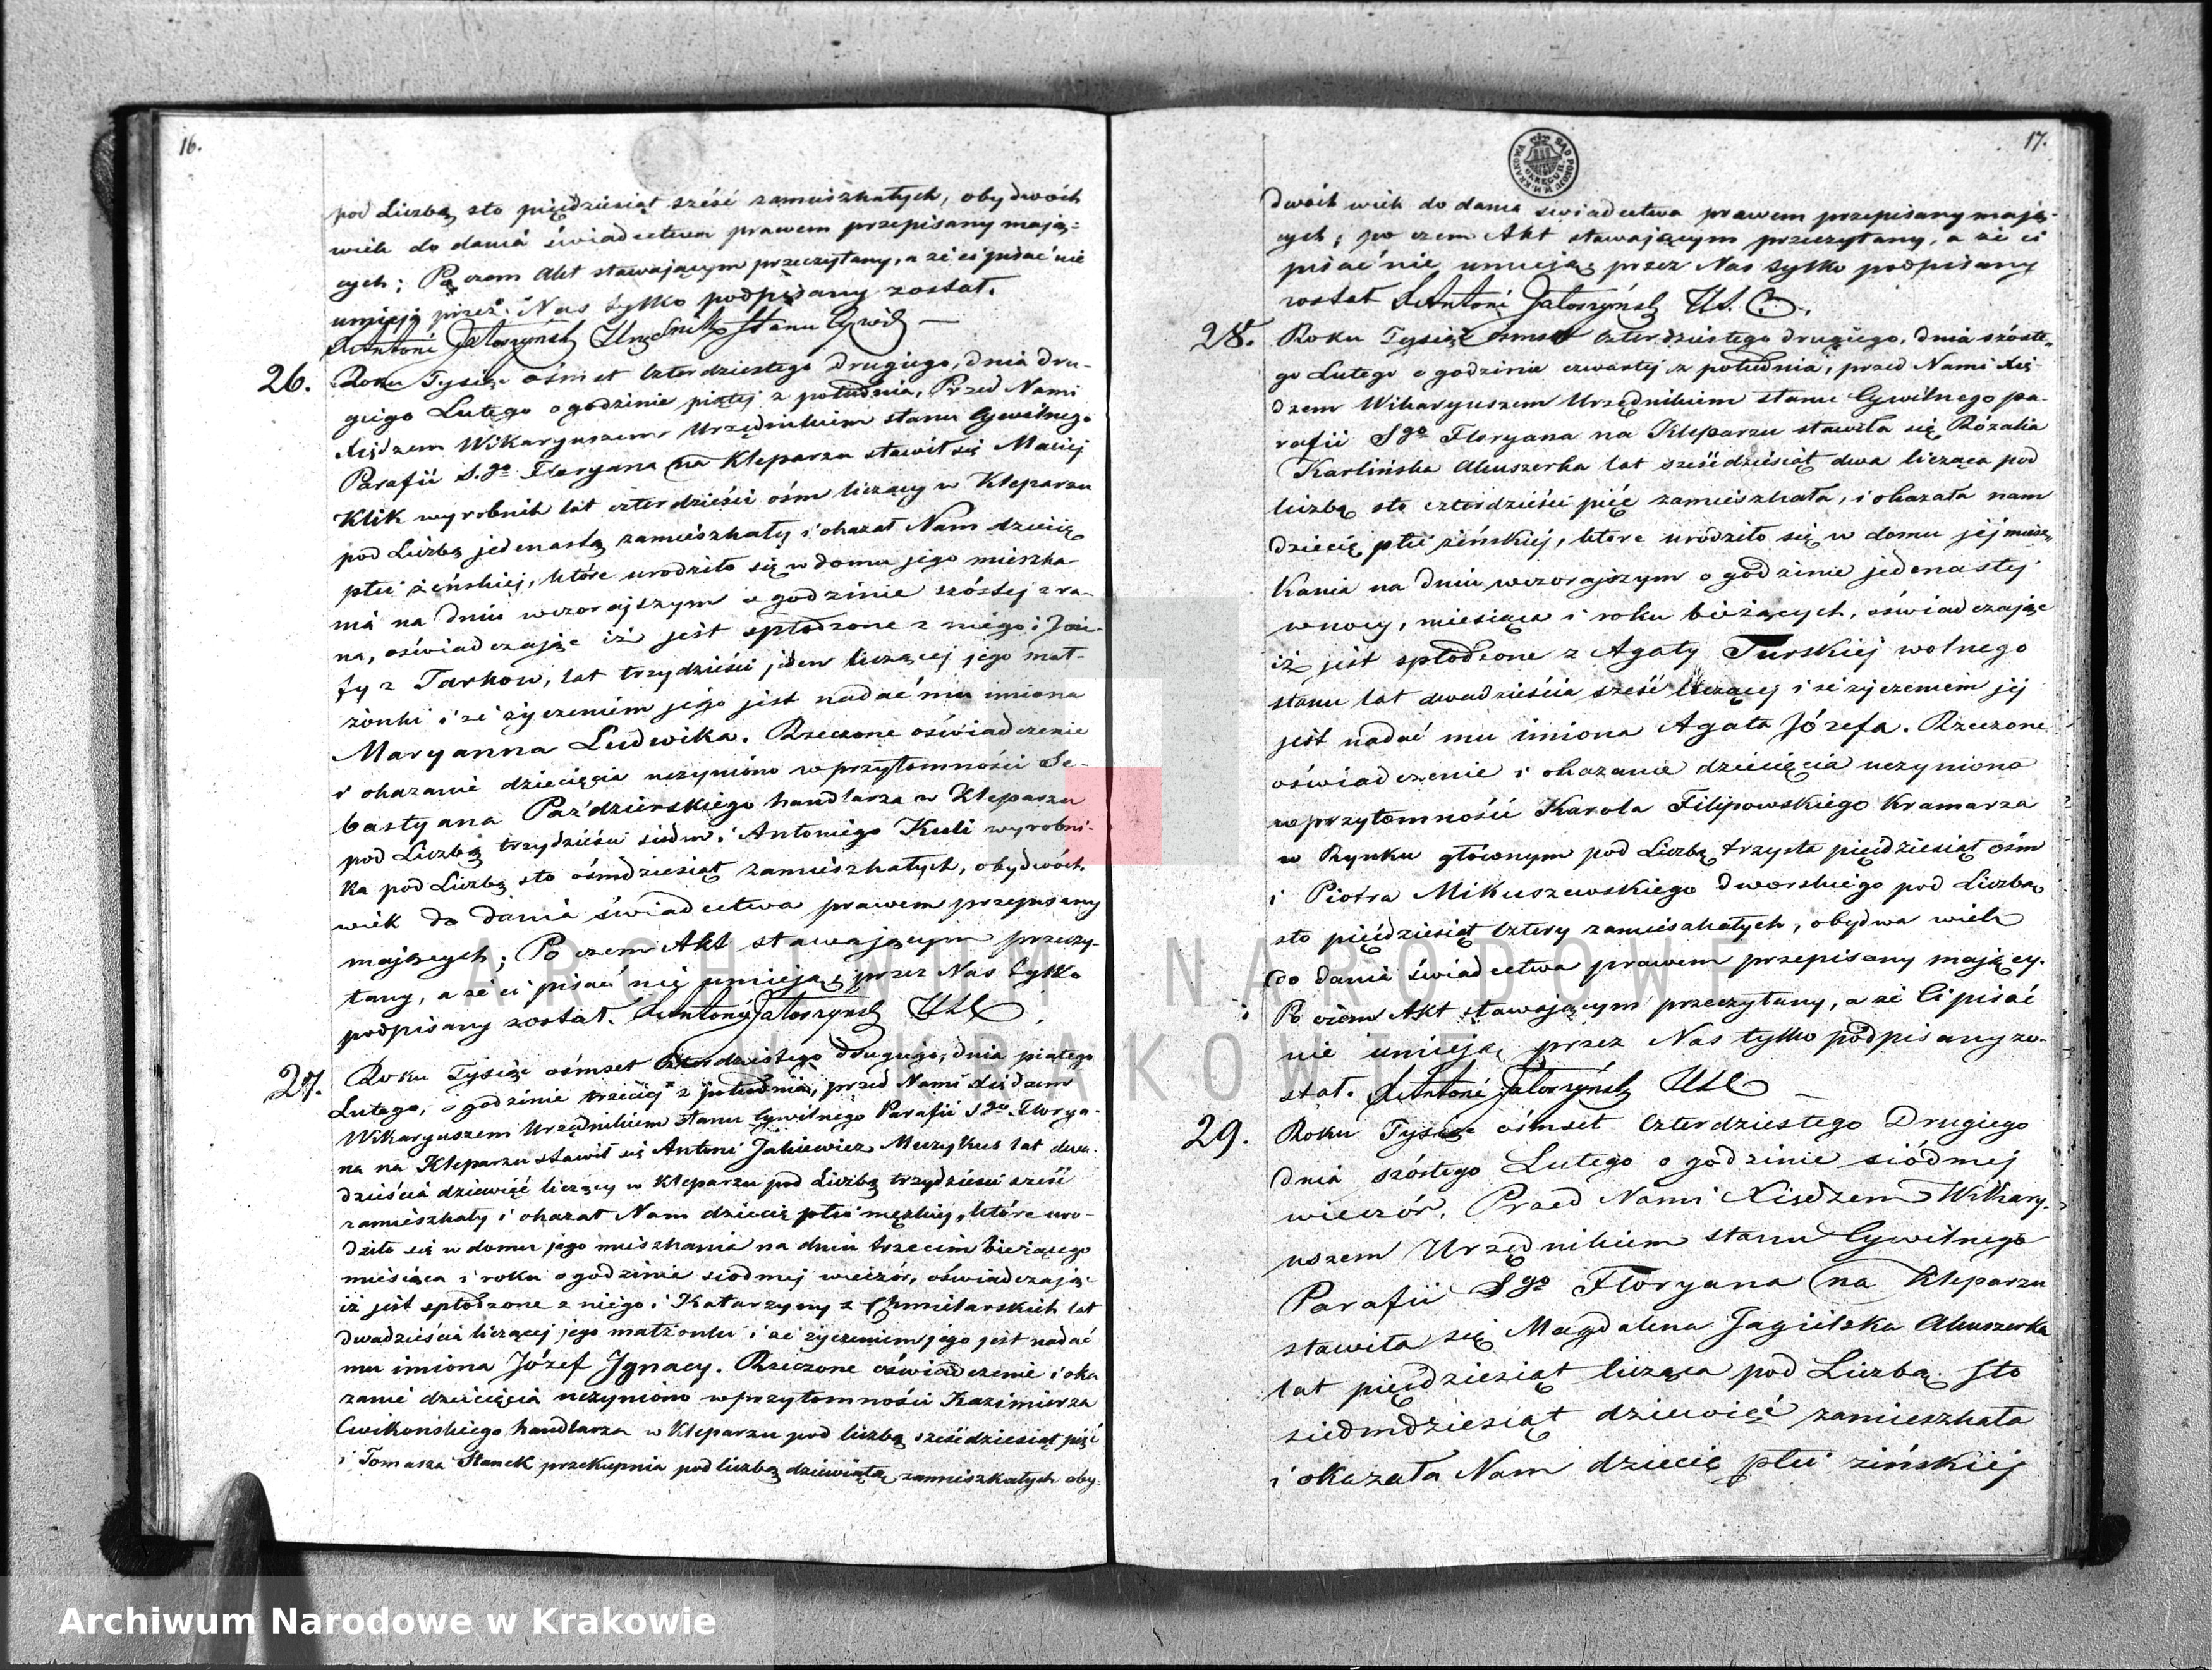 16.
pod Liczbą sto pięćdziesiąt sześć zamieszkałych, obydwóch
wiek do dania świadectwa prawem przepisany mają=
cych; Po czem Akt stawającym przeczytany, a że ci pisać nie
umieją przez Nas tylko podpisany został.
X Antoni Urzędnik Stanu Cywil
26. Roku Tysiąc ośmset czterdziestego drugiego, dnia dru-
giego Lutego o godzinie piątej z południa, Przed Nami
Xiędzem Wikaryuszem Urzędnikiem stanu Cywilnego
Parafii S.go Floryana na Kleparzu stawił się Maciej
Klik wyrobnik lat czterdzieści ośm liczący w Kleparzu
pod Liczbą jedenastą zamieszkały i okazał Nam dziecię
płci żeńskiej, które urodziło się w domu jego mieszka-
nia na dniu wczorajszym o godzinie szóstej z ra-
na, oświadczając iż jest spłodzone z niego i
z Tarkow, lat trzydzieści jeden liczącej jego mał-
żonki i że życzeniem jego jest nadać mu imiona
Maryanna Ludwika. Rzeczone oświadczenie
i okazanie dziecięcia uczyniono w przytomności Se-
bastyana Paździerskiego handlarza w Kleparzu
pod Liczbą trzydzieści siedm i Antoniego Kuli wyrobni-
ka pod Liczbą sto ośmdziesiąt zamieszkałych, obydwóch
wiek do dania świadectwa prawem przepisany
mających; Po czem Akt stawającym przeczy-
tany, a że ci pisać nie umieją, przez Nas tylko
podpisany został. X Antoni USC
27. Roku Tysiąc ośmset czterdziestego drugiego, dnia piątego
Lutego, o godzinie trzeciej z południa, przed Nami Xiędzem
Wikaryuszem Urzędnikiem stanu Cywilnego Parafii Sgo Florya-
na na Kleparzu stawił się Antoni Jakiewicz Muzykus lat dwa-
dzieścia dziewięć liczący w Kleparzu pod Liczbą trzydzieści sześć
zamieszkały i okazał Nam dziecię płci męzkiej, które uro-
dziło się w domu jego mieszkania na dniu trzecim bieżącego
miesiąca i roku o godzinie siódmej wieczór, oświadczając
iż jest spłodzone z niego i Katarzyny z Chmielarskich lat
dwadzieścia liczącej jego małżonki i że życzeniem jego jest nadać
mu imiona Józef Jgnacy. Rzeczone oświadczenie i oka
zanie dziecięcia uczyniono w przytomności Kazimierza
Cwikońskiego handlarza w Kleparzu pod liczbą sześćdziesiąt pięć
i Tomasza Stanek przekupnia pod liczbą dziewiątą zamieszkałych oby-
17.
dwóch wiek do dania świadectwa prawem przepisany mają-
cych; po czem Akt stawającym przeczytany, a że ci
pisać nie umieją przez Nas tylko podpisany
został X Antoni U.S.C.
28. Roku Tysiąc ośmset czterdziestego drugiego, dnia szóste-
go Lutego o godzinie czwartej z południa, przed Nami Xię-
dzem Wikaryuszem Urzędnikiem stanu Cywilnego pa-
rafii Sgo Floryana na Kleparzu stawiła się Rózalia
Karlińska Akuszerka lat sześćdziesiąt dwa licząca pod
liczbą sto czterdzieści pięć zamieszkała, i okazała nam
dziecię płci żeńskiej, które urodziło się w domu jej miesz-
kania na dniu wczorajszym o godzinie jedenastej
w nocy, miesiąca i roku bieżących, oświadczając
iż jest spłodzone z Agaty Turskiej wolnego
stanu lat dwadzieścia sześć liczącej i że życzeniem jej
jest nadać mu imiona Agata Józefa. Rzeczone
oświadczenie i okazanie dziecięcia uczyniono
w przytomności Karola Filipowskiego Kramarza
w Rynku głównym pod Liczbą trzysta pięćdziesiąt ośm
i Piotra Mikuszewskiego dworskiego pod Liczbą
sto pięćdziesiąt cztery zamieszkałych, obydwa wiek
do dania świadectwa prawem przepisany mający.
Po czem Akt stawającym przeczytany, a że Ci pisać
nie umieją, przez Nas tylko podpisany zo-
stał. X Antoni USC
29. Roku Tysiąc ośmset Czterdziestego Drugiego
dnia szóstego Lutego o godzinie siódmej
wieczór, Przed Nami Xiędzem Wikary-
uszem Urzędnikiem stanu Cywilnego
Parafii Sgo Floryana na Kleparzu
stawiła się Magdalena Jagielska Akuszerka
lat pięćdziesiąt licząca pod Liczbą sto
siedmdziesiąt dziewięć zamieszkała
i okazała Nam dziecię płci żeńskiej
ARCHIWUM NARODOWE
W KRAKOWIE
Archiwum Narodowe w Krakowie